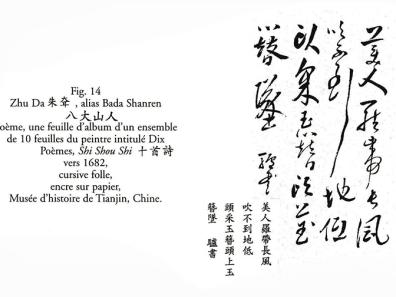 Fig. 14
Zhu Da 朱耷 , alias Bada Shanren
八大山人
oème, une feuille d'album d'un ensemble
de 10 feuilles du peintre intitulé Dix
Poèmes, Shi Shou Shi 十首詩
vers 1682,
cursive folle,
encre sur papier,
Musée d'histoire de Tianjin, Chine.
美人羅帶長風
吹不到地低
頭采玉簪頭上玉
簪墜 驢書
美人羅帶長風
吹不到地低
頭采玉簪頭上玉
簪墜 驢書